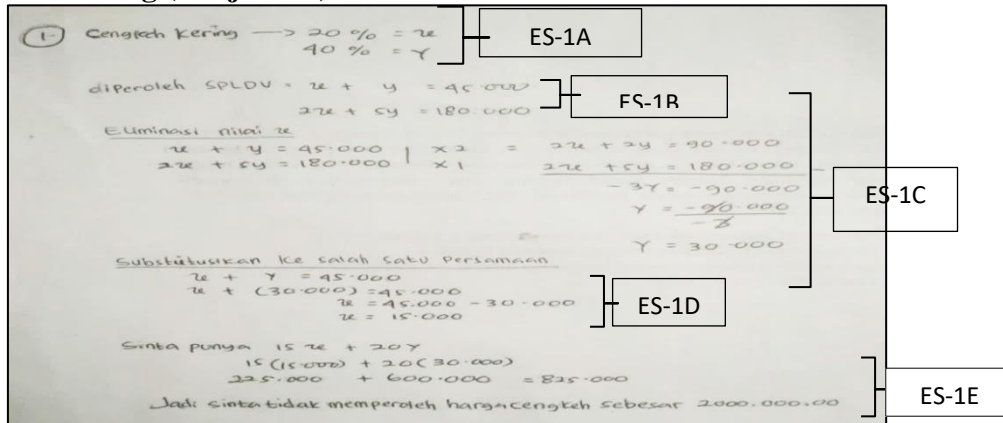 1. Cengkeh Kering → 20 % = x
40 % = Y
ES-1A
diperoleh SPLDV = x + y = 45.000
2x + 5y = 180.000
ES-1B
Eliminasi nilai x
x + y = 45.000 | x 2 = 2x + 2y = 90.000
2x + 5y = 180.000 | x 1 2x + 5y = 180.000
- 3Y = - 90.000
Y = - 90.000
- 3
Y = 30.000
ES-1C
Substitusikan ke salah satu persamaan
x + Y = 45.000
x + (30.000) = 45.000
x = 45.000 - 30.000
x = 15.000
ES-1D
Sinta punya 15 x + 20 Y
15 (15.000) + 20 (30.000)
225.000 + 600.000 = 825.000
Jadi sinta tidak memperoleh harga cengkeh sebesar 2000.000,00
ES-1E